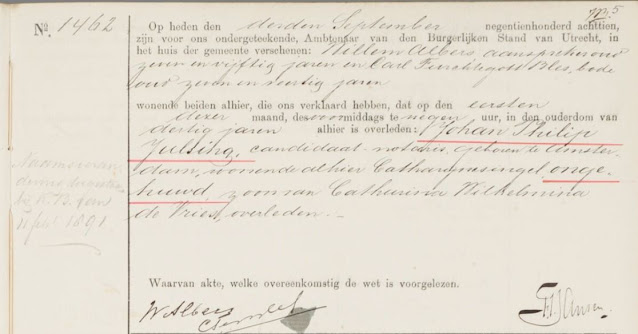 Nº. 1462
Op heden den derden September negentienhonderd achttien,
zijn voor ons ondergeteekende, Ambtenaar van den Burgerlijken Stand van Utrecht, in
het huis der gemeente verschenen: Willem Albers, aanspreker oud
zeven en vijftig jaren en Carl Bles, bode
oud zeven en veertig jaren
wonende beiden alhier, die ons verklaard hebben, dat op den eersten
dezer maand, des voormiddags te negen uur, in den ouderdom van
dertig jaren alhier is overleden: Johan Philip
Julsing, candidaat notaris, geboren te Amster-
dam, wonende alhier Catharijnesingel, onge-
huwd, zoon van Catharina Wilhelmina
de Vries, overleden.
1891.
Waarvan akte, welke overeenkomstig de wet is voorgelezen.
W Albers
Jansen